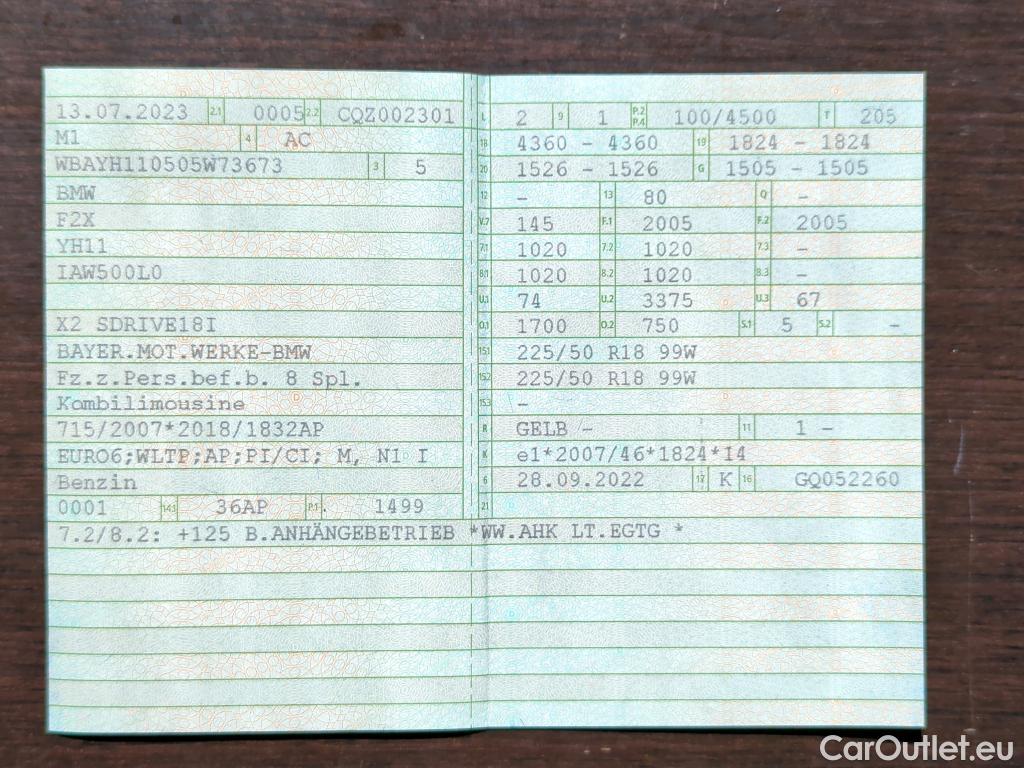 13.07.2023 2.1 0005 2.2 CQZ002301
M1 4 AC
WBAYH110505W73673 3 5
BMW
F2X
YH11
IAW500L0
X2 SDRIVE18I
BAYER.MOT.WERKE-BMW
Fz.z.Pers.bef.b. 8 Spl.
Kombilimousine
715/2007*2018/1832AP
EURO6;WLTP;AP;PI/CI; M, N1 I
Benzin
0001 14.1 36AP P.1 1499
L 2 9 1 P.2 P.4 100/4500 T 205
18 4360 - 4360 19 1824 - 1824
20 1526 - 1526 G 1505 - 1505
12 - 13 80 Q -
V.7 145 F.1 2005 F.2 2005
7.1 1020 7.2 1020 7.3 -
8.1 1020 8.2 1020 8.3 -
U.1 74 U.2 3375 U.3 67
O.1 1700 O.2 750 S.1 5 S.2 -
15.1 225/50 R18 99W
15.2 225/50 R18 99W
15.3 -
R GELB - 11 1 -
K e1*2007/46*1824*14
6 28.09.2022 17 K 16 GQ052260
21
7.2/8.2: +125 B.ANHÄNGEBETRIEB *WW.AHK LT.EGTG *
CarOutlet.eu